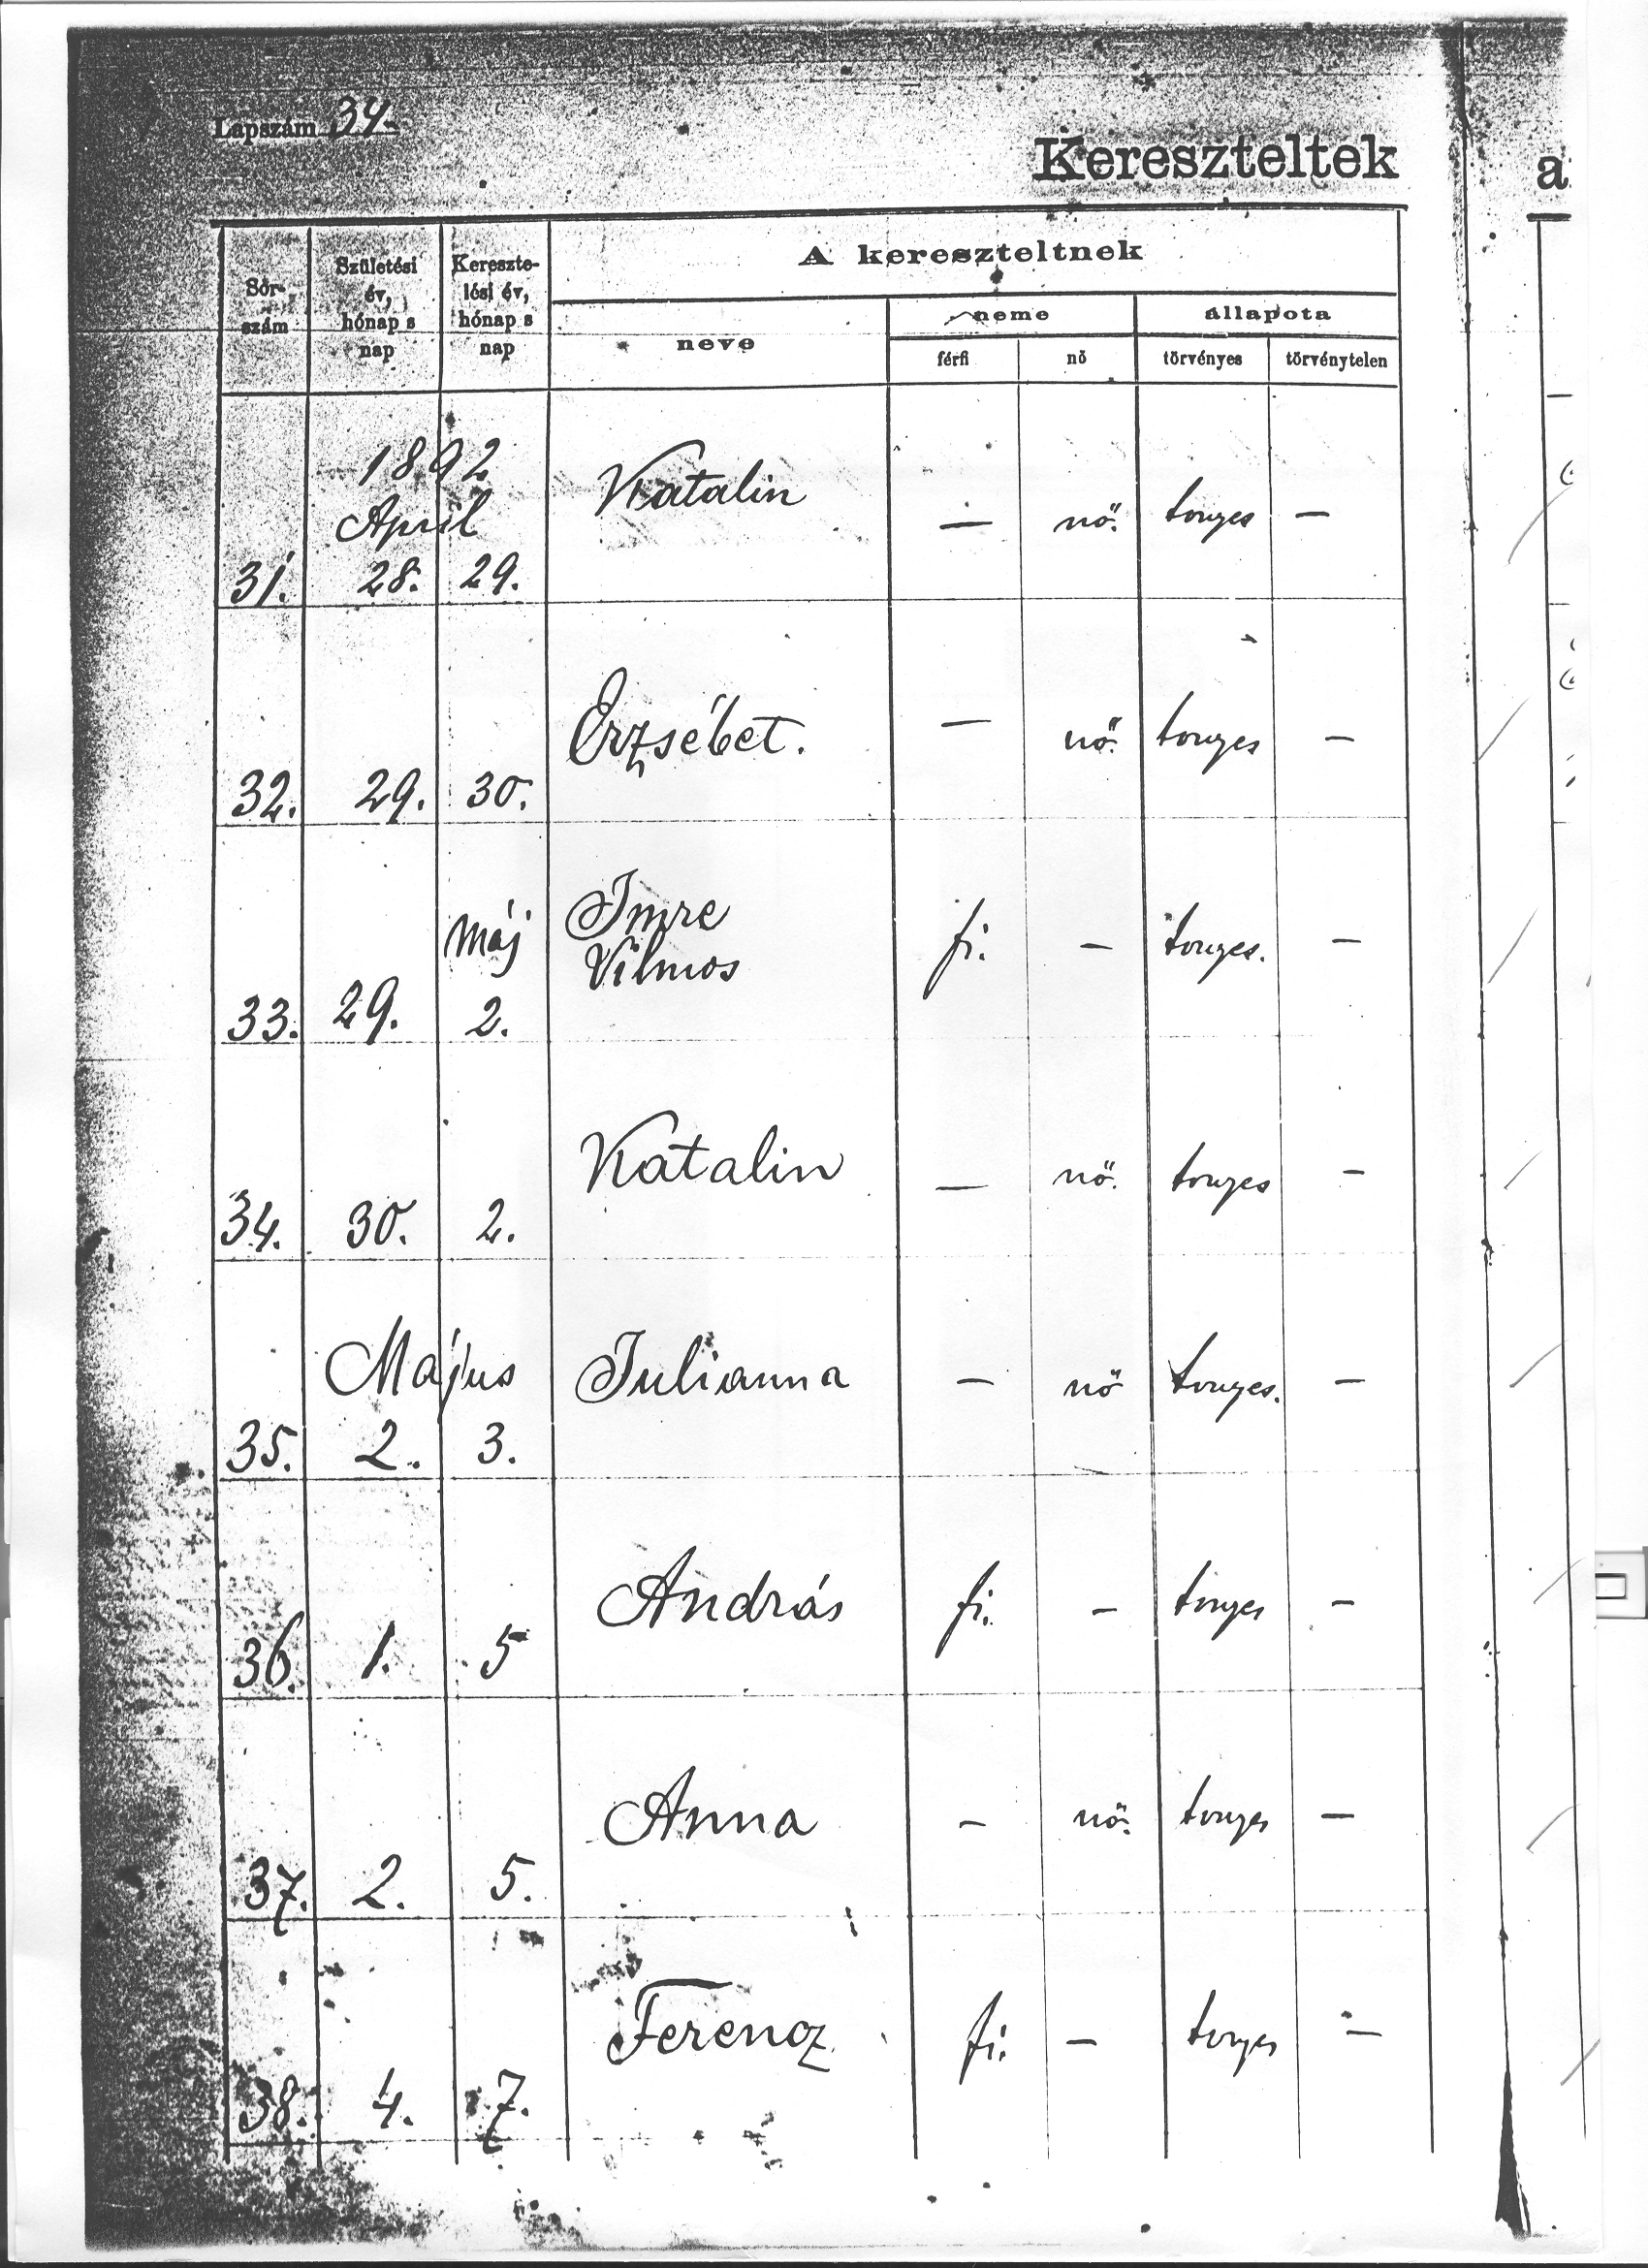 Lapszám 34.
Kereszteltek
a
Sor-
szám
Születési
év,
hónap s
nap
Keresztе-
lési év,
hónap s
nap
A kereszteltnek
neve
neme
állapota
férfi
nő
törvényes
törvénytelen
1892
April
31. 28. 29. Katalin — nő. tvnyes —
32. 29. 30. Erzsébet. — nő. tvnyes —
Máj Imre
33. 29. 2. Vilmos fi. — tvnyes. —
34. 30. 2. Katalin — nő. tvnyes —
Május
35. 2. 3. Julianna — nő tvnyes. —
36. 1. 5 András fi. — tvnyes —
37. 2. 5. Anna — nő. tvnyes —
38. 4. 7. Ferencz fi. — tvnyes —